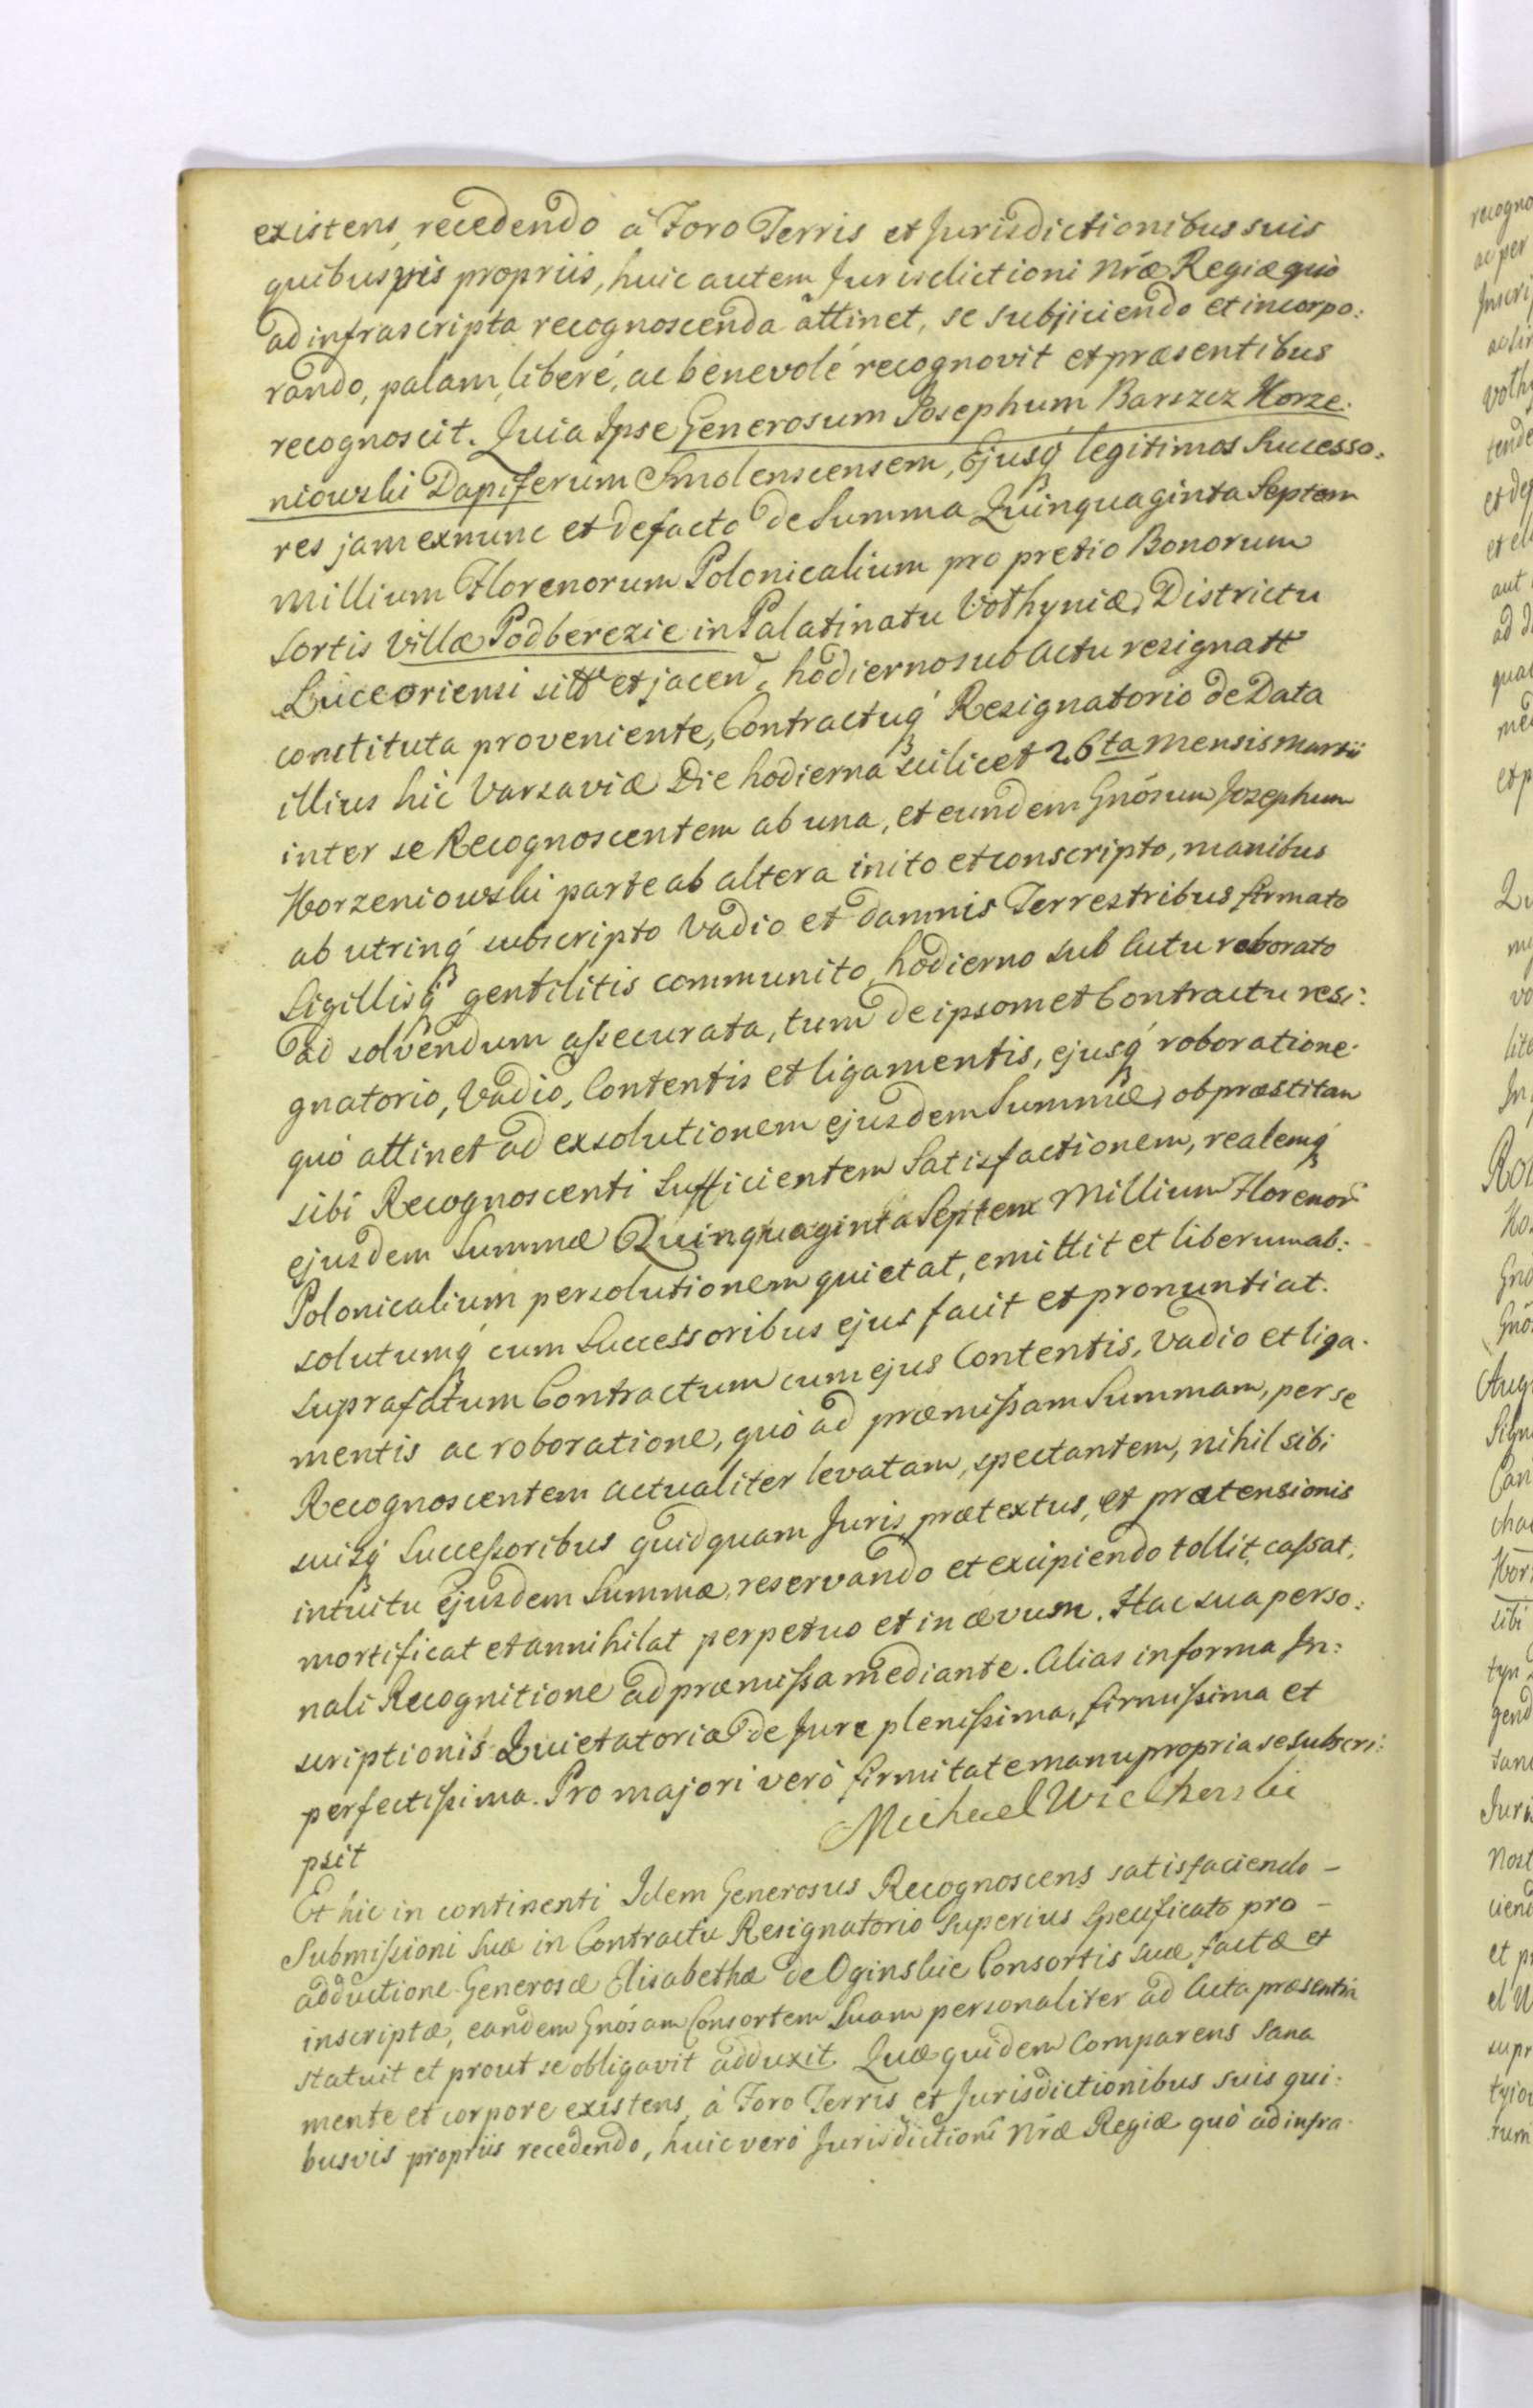 existens, recedendo à Foro Terris et Jurisdictionibus suis
quibusvis propriis, huic autem Jurisdictioni Nræ Regiæ quò
ad infrascripta recognoscenda attinet, se subjiciendo et incorpo:
rando, palam, liberé, ac benevolé recognovit et præsentibus
recognoscit. Quia Ipse Generosum Josephum Barszcz Korze:
niowski Dapiferum Smolenscensem, Ejusq́ legitimos Successo:
res jam exnunc et defacto de Summa Quinquaginta Septem
Millium Florenorum Polonicalium pro pretio Bonorum
Sortis Villæ Podberezie in Palatinatu Volhyniæ, Districtu
Luceoriensi sitt et jacen, hodierno sub Actu resignatt
constituta proveniente, Contractuq́ Resignatorio de Data
illius hic Varsaviæ Die hodierna scilicet 26ta Mensis Martii
inter se Recognoscentem ab una, et eundem Gnósum Josephum
Korzeniowski parte ab altera inito et conscripto, manibus
ab utrinq́ subscripto Vadio et damnis Terrestribus firmato
Sigillisq́ gentilitis communito, hodierno sub Actu roborato
ad solvendum assecurata, tum de ipsomet Contractu resi:
gnatorio, Vadio, Contentis et ligamentis, ejusq́ roboratione
quò attinet ad exsolutionem ejusdem Summæ, ob præstitam
sibi Recognoscenti Sufficientem Satisfactionem, realemq́
ejusdem Summæ Quinquaginta Septem Millium Florenor
Polonicalium persolutionem quietat, emittit et liberum ab:
solutumq́ cum Successoribus ejus facit et pronuntiat.
Suprafatum Contractum cum ejus Contentis, Vadio et liga:
mentis ac roboratione, quò ad præmissam Summam, per se
Recognoscentem actualiter levatam, spectantem, nihil sibi
suisq́ Successoribus quidquam Juris, prætextus, et prætensionis
intuitu ejusdem Summæ, reservando et excipiendo tollit, cassat,
mortificat et annihilat perpetuo et in ævum. Hac sua perso:
nali Recognitione ad præmissa mediante. Alias in forma In:
scriptionis Quietatoriæ de Jure plenissima, firmissima et
perfectissima. Pro majori verò firmitate manu propria se subscri:
psit
Michael Wielhorski
Et hic in continenti Idem Generosus Recognoscens satisfaciendo -
Submissioni Suæ in Contractu Resignatorio superius specificato pro -
adductione Generosæ Elisabethæ de Oginskie Consortis suæ, factæ et
inscriptæ, eandem Gnósam Consortem Suam personaliter ad Acta præsentia
statuit et prout se obligavit adduxit. Quæ quidem Comparens sana
mente et corpore existens, à Foro Terris et Jurisdictionibus suis qui:
busvis propriis recedendo, huic verò Jurisdictioni Nræ Regiæ quò ad infra